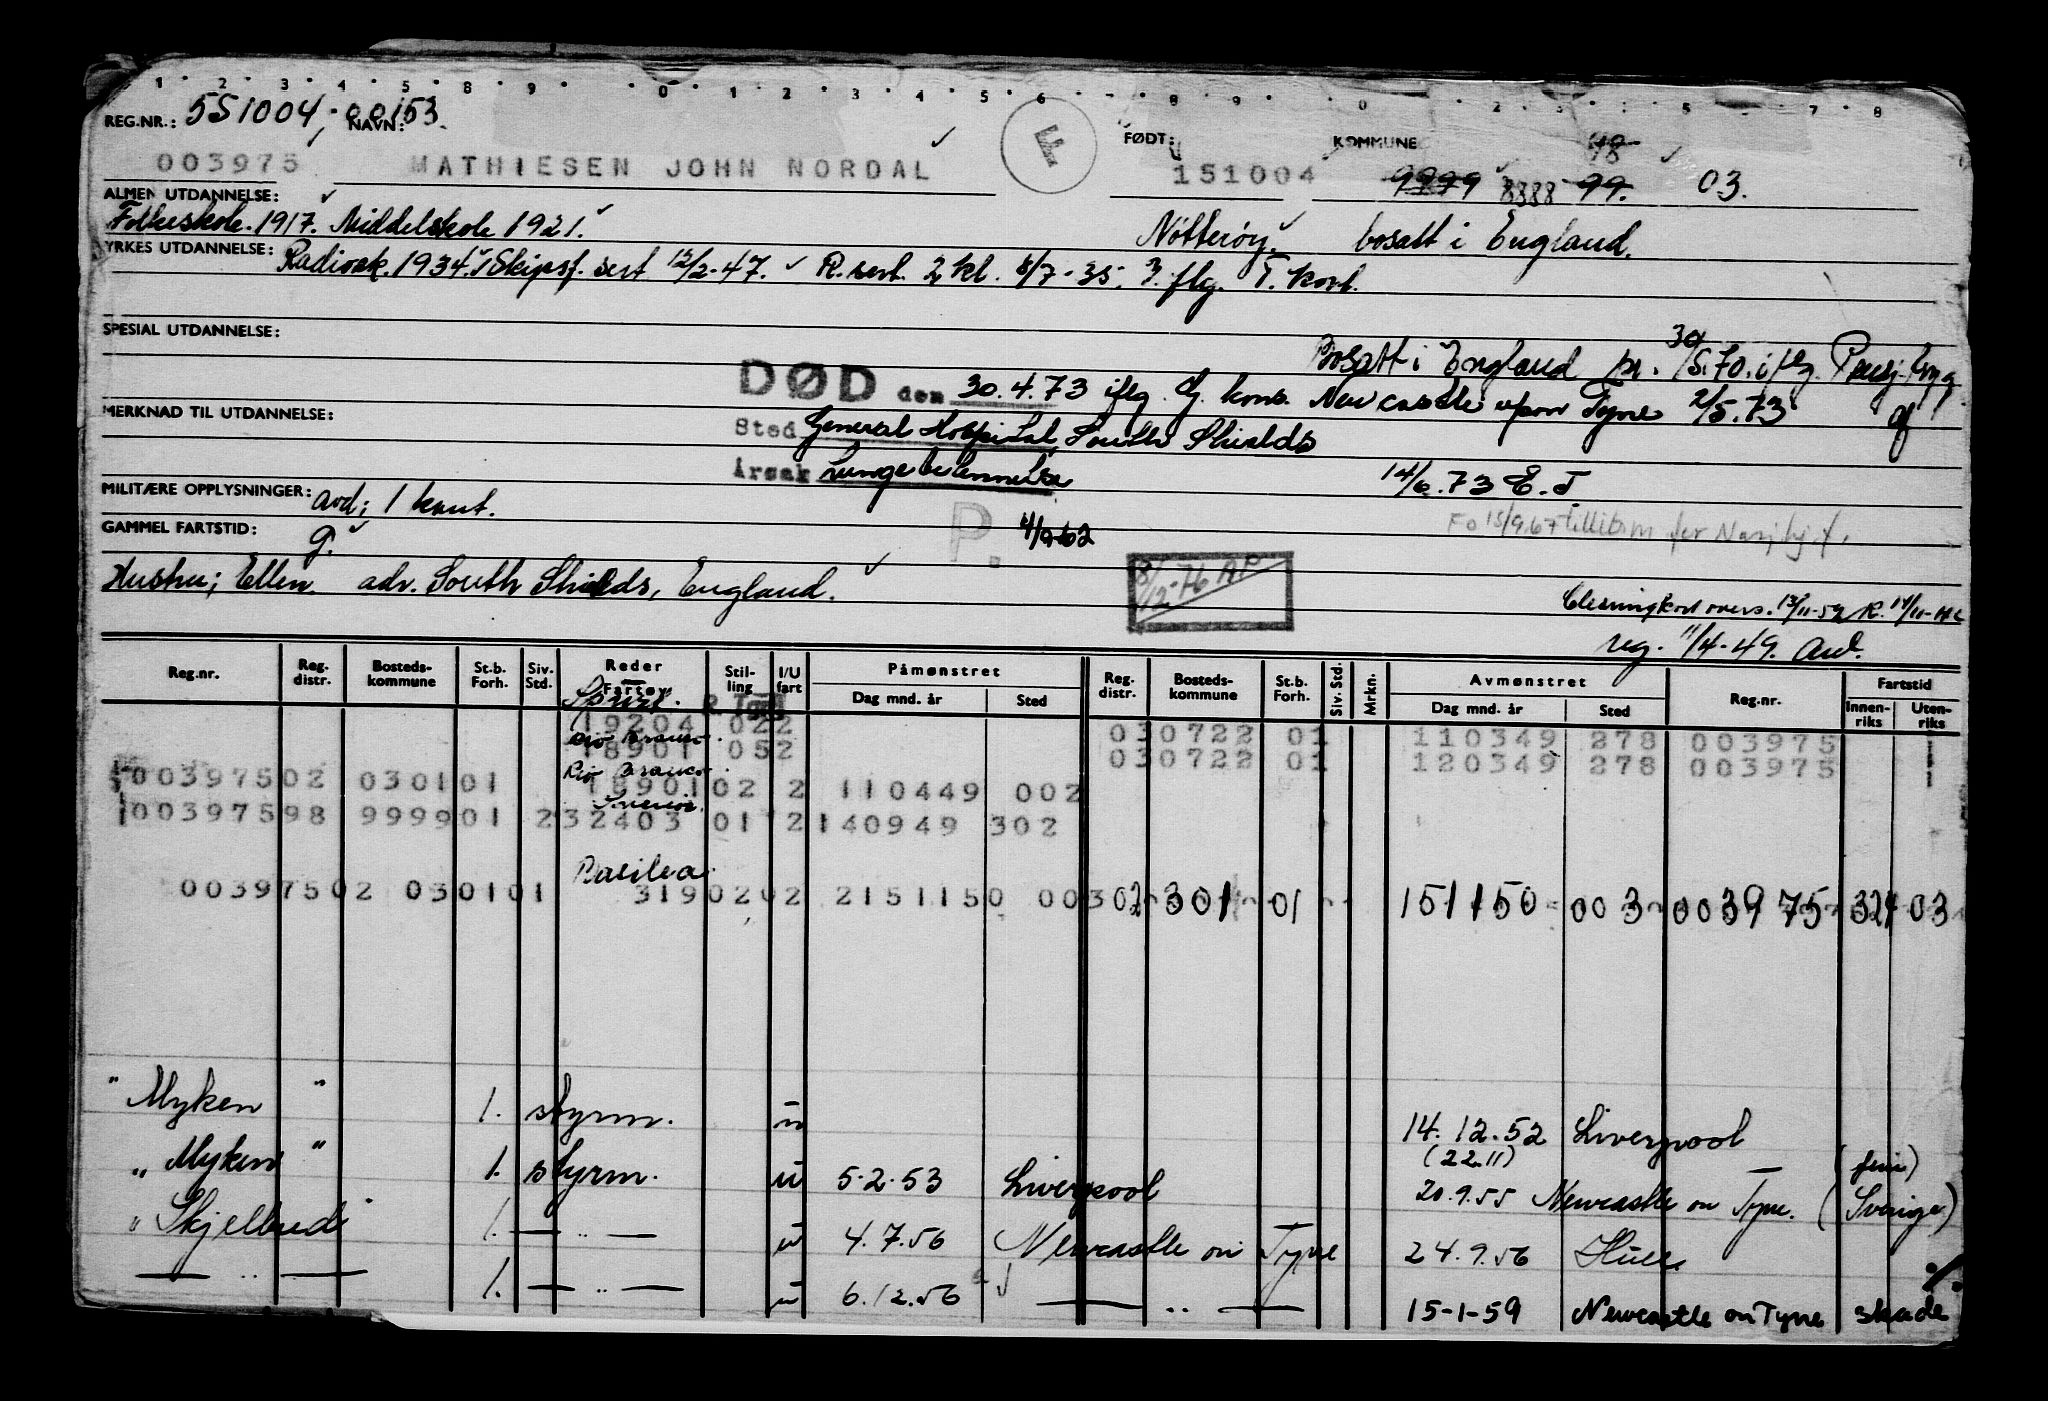 1 2 3 4 5 8 9 0 1 2 3 4 5 6 7 8 9 0 2 3 5 7 8
REG.NR.: 551004, 00153. NAVN: F FØDT: KOMMUNE 48
003975 MATHIESEN JOHN NORDAL 151004 9979 8888 99. 03.
ALMEN UTDANNELSE:
Folkeskole. 1917. Middelskole 1921. Nøtterøy. bosatt i England.
YRKES UTDANNELSE: Radioak. 1934. Skipsf. sert 12/2-47. R. sert. 2 kl. 8/7-35. 3. flg. T. kort.
SPESIAL UTDANNELSE:
Bosatt i England pr. 30/5.70. i flg. Pensj.tryg
DØD den 30.4.73 iflg. Gj. kons. Newcastle upon Tyne 2/5.73
MERKNAD TIL UTDANNELSE:
Sted General Hospital, South Shields
Årsak Lungebetennelse 14/6.73 E.T.
MILITÆRE OPPLYSNINGER: avd; 1 kont.
P. 4/9-62 Fo 15/9.67
GAMMEL FARTSTID: g.
Hustru; Ellen. adr. South Shields, England. 8/12-76 AP
reg. 11/4-49. Aud.
Reg.nr. Reg. distr. Bosteds-kommune St.b. Forh. Siv. Std. Reder Fartøy Stil-ling I/U fart Påmønstret Dag mnd. år Sted Reg. distr. Bosteds-kommune St.b. Forh. Siv. Std. Mrkn. Avmønstret Dag mnd. år Sted Reg.nr. Fartstid Innen-riks Uten-riks
19204 022 030722 01 110349 278 003975
Rio Branco.
18901 052 030722 01 120349 278 003975
Rio Branco.
00397502 030101 18901 02 2 110449 002
00397598 999901 232403 01 2 140949 302
Basilea.
00397502 030101 319020 2 2151150 003 02 301 01 151150 003 003975 324 03
" Myken " 1. styrm. u 14.12.52 Liverpool
(22.11) (ferie)
" Myken " 1. styrm. u 5.2.53 Liverpool 20.9.55 Newcastle on Tyne. (Sverige)
" Skjelbred " 1. — " — u 4.7.56 Newcastle on Tyne 24.9.56 Hull.
— " — 1. — " — u 6.12.56 — " — 15-1-59 Newcastle on Tyne skade